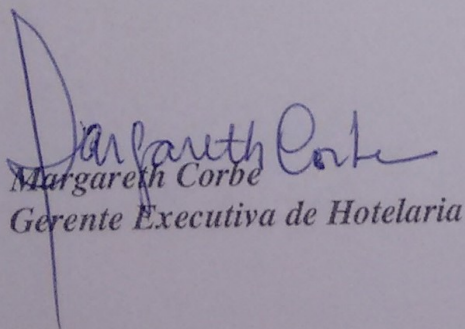 Margareth Corbe
Margareth Corbe
Gerente Executiva de Hotelaria